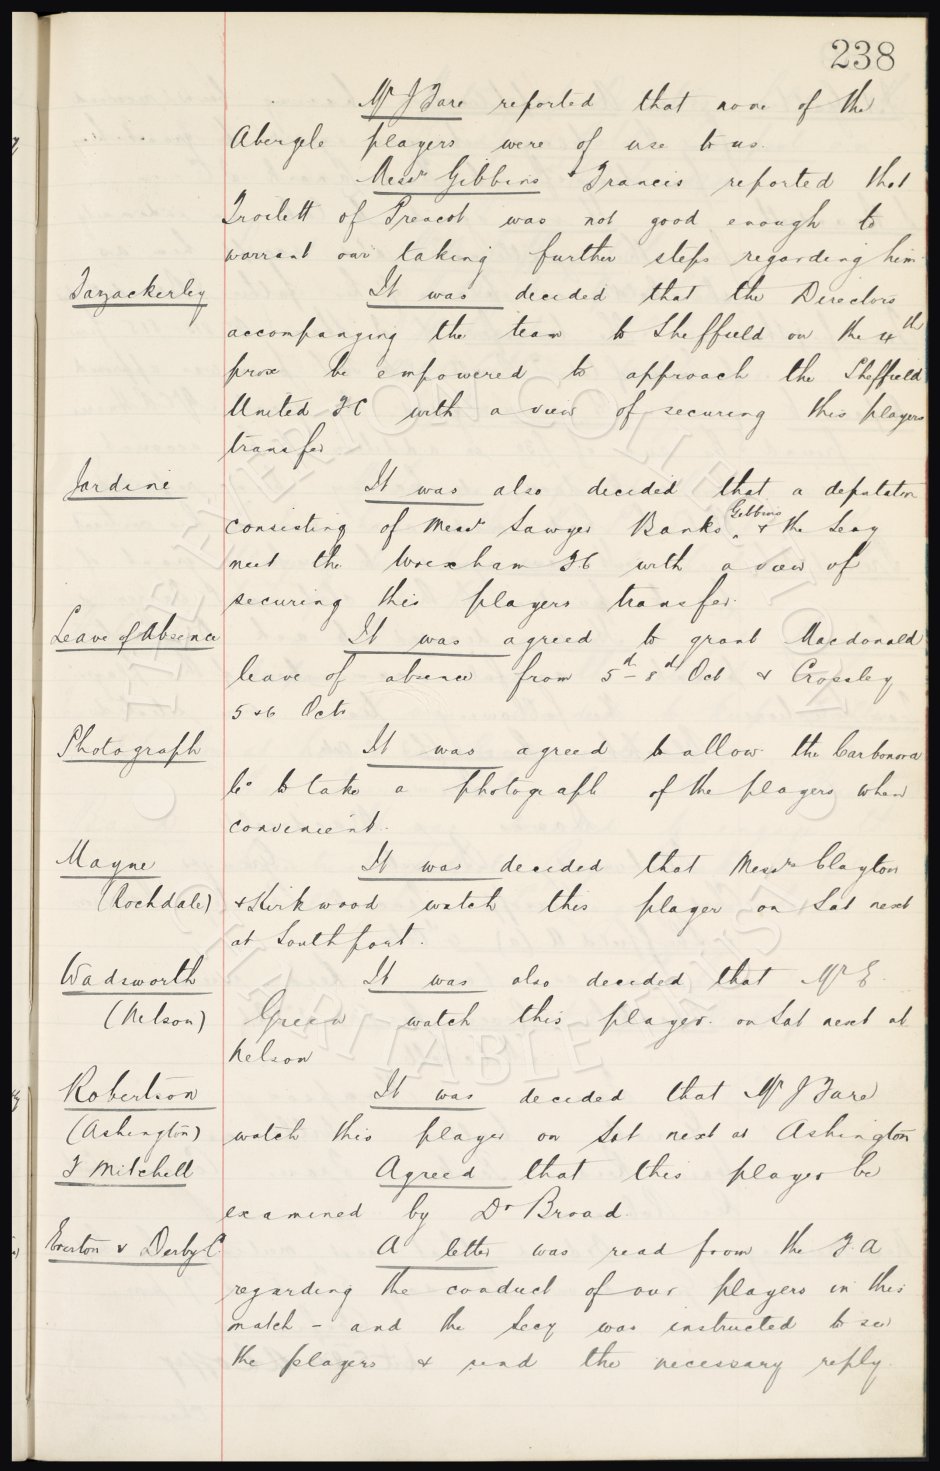 238
Mr J Fare reported that none of the
Abergele players were of use to us.
Messrs Gibbins & Francis reported that
of Prescot was not good enough to
warrant our taking further steps regarding him.
Fazackerley It was decided that the Directors
accompanying the team to Sheffield on the 4th
prox be empowered to approach the Sheffield
United FC with a view of securing this players
transfer
Jardine It was also decided that a deputation
consisting of Messrs Sawyer Banks Gibbins & the Secy
meet the Wrexham FC with a view of
securing this players transfer.
Leave of Absence It was agreed to grant Macdonald
leave of absence from 5th - 8th Oct & Crossley
5 & 6 Oct
Photograph It was agreed to allow the Carbonora
Co to take a photograph of the players when
convenient.
Mayne It was decided that Messrs Clayton
(Rochdale) & Kirkwood watch this player on Sat next
at Southport.
Wadsworth It was also decided that Mr E
(Nelson) Green watch this player on Sat next at
Nelson
Robertson It was decided that Mr J Fare
(Ashington) watch this player on Sat next at Ashington
F Mitchell Agreed that this player be
examined by Dr Broad.
Everton v Derby C. A letter was read from the F.A
regarding the conduct of our players in this
match - and the Secy was instructed to see
the players & send the necessary reply.
EVERTON COLLECTION
CHARITABLE TRUST